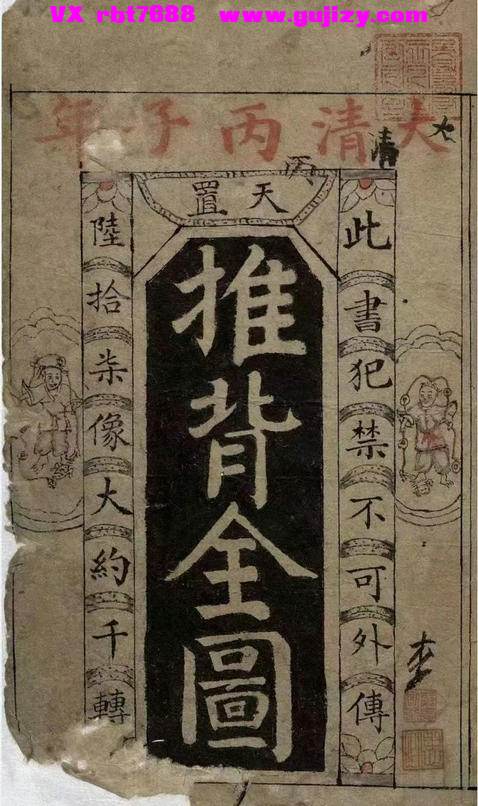 VX rbt7888 www.gujizy.com
大清丙子年
大
清
丙
天置
此書犯禁不可外傳
推背全圖
陸拾柒像大約千轉
李